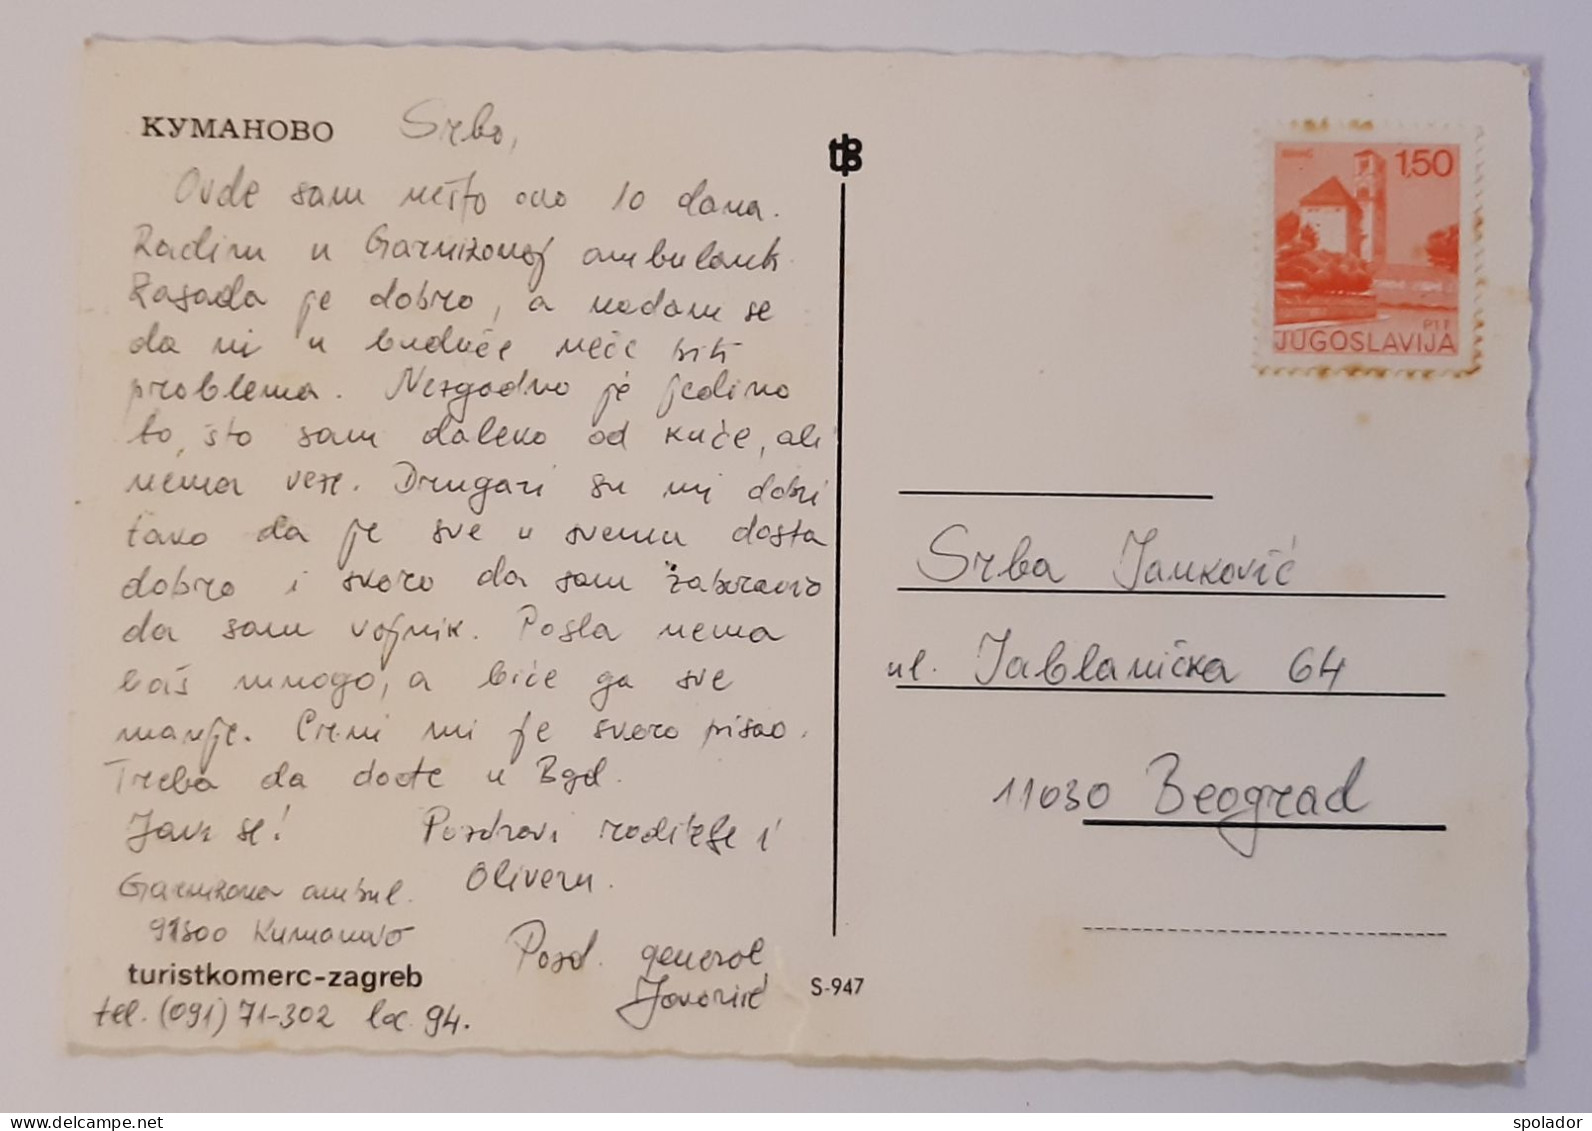 КУМАНОВО Srbo,
Ovde sam nešto oko 10 dana.
Radim u Garnizonoj ambulank.
Zasada je dobro, a nadam se
da ni u buduće neće biti
problema. Nezgodno je jedino
to, što sam daleko od kuće, ali
nema veze. Drugari su mi dobri
tako da je sve u svemu dosta
dobro i skoro da sam zaboravio
da sam vojnik. Posla nema
baš mnogo, a biće ga sve
manje. Crni mi je skoro pisao.
Treba da dođe u Bgd.
Javi se! Pozdravi roditelje i
Oliveru.
Garnizona ambul.
91300 Kumanovo
Pozd. general
turistkomerc-zagreb
tel. (091) 71-302 loc. 94.
S-947
1,50
PTT
JUGOSLAVIJA
Srba Janković
ul. Jablanička 64
11030 Beograd
https://www.delcampe.net
spolador